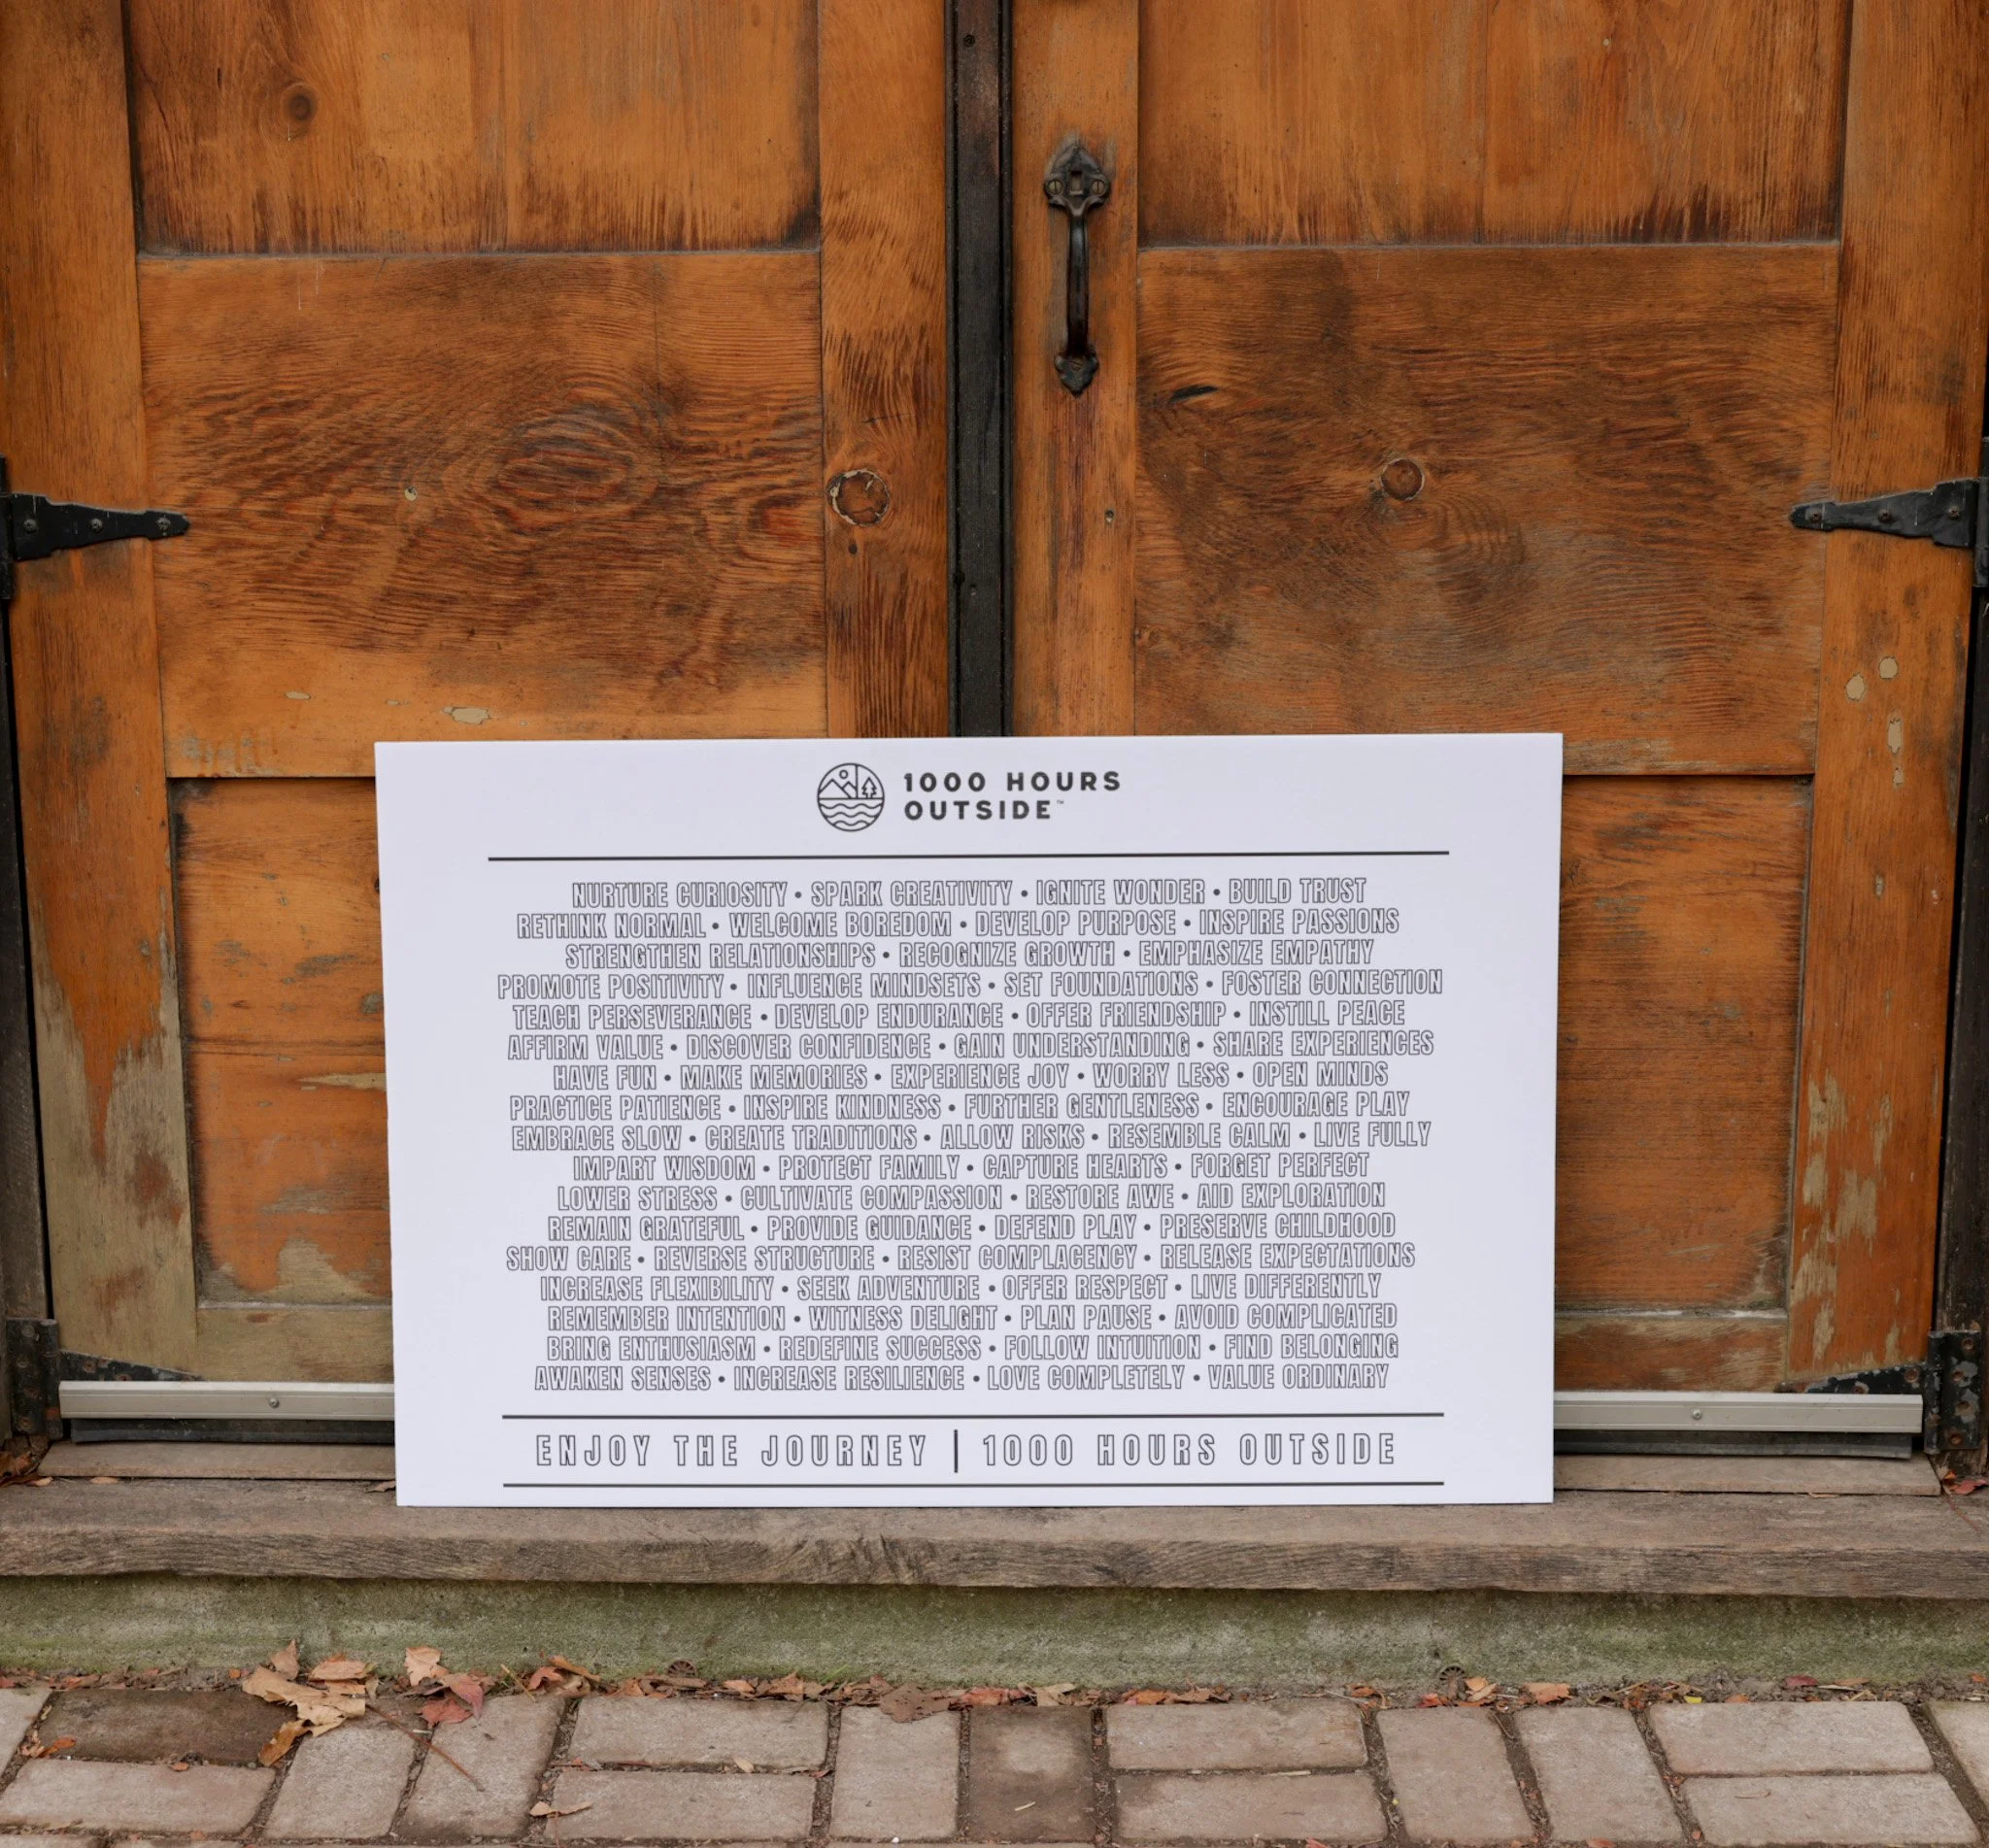 1000 HOURS
OUTSIDE™
NURTURE CURIOSITY • SPARK CREATIVITY • IGNITE WONDER • BUILD TRUST
RETHINK NORMAL • WELCOME BOREDOM • DEVELOP PURPOSE • INSPIRE PASSIONS
STRENGTHEN RELATIONSHIPS • RECOGNIZE GROWTH • EMPHASIZE EMPATHY
PROMOTE POSITIVITY • INFLUENCE MINDSETS • SET FOUNDATIONS • FOSTER CONNECTION
TEACH PERSEVERANCE • DEVELOP ENDURANCE • OFFER FRIENDSHIP • INSTILL PEACE
AFFIRM VALUE • DISCOVER CONFIDENCE • GAIN UNDERSTANDING • SHARE EXPERIENCES
HAVE FUN • MAKE MEMORIES • EXPERIENCE JOY • WORRY LESS • OPEN MINDS
PRACTICE PATIENCE • INSPIRE KINDNESS • FURTHER GENTLENESS • ENCOURAGE PLAY
EMBRACE SLOW • CREATE TRADITIONS • ALLOW RISKS • RESEMBLE CALM • LIVE FULLY
IMPART WISDOM • PROTECT FAMILY • CAPTURE HEARTS • FORGET PERFECT
LOWER STRESS • CULTIVATE COMPASSION • RESTORE AWE • AID EXPLORATION
REMAIN GRATEFUL • PROVIDE GUIDANCE • DEFEND PLAY • PRESERVE CHILDHOOD
SHOW CARE • REVERSE STRUCTURE • RESIST COMPLACENCY • RELEASE EXPECTATIONS
INCREASE FLEXIBILITY • SEEK ADVENTURE • OFFER RESPECT • LIVE DIFFERENTLY
REMEMBER INTENTION • WITNESS DELIGHT • PLAN PAUSE • AVOID COMPLICATED
BRING ENTHUSIASM • REDEFINE SUCCESS • FOLLOW INTUITION • FIND BELONGING
AWAKEN SENSES • INCREASE RESILIENCE • LOVE COMPLETELY • VALUE ORDINARY
ENJOY THE JOURNEY | 1000 HOURS OUTSIDE